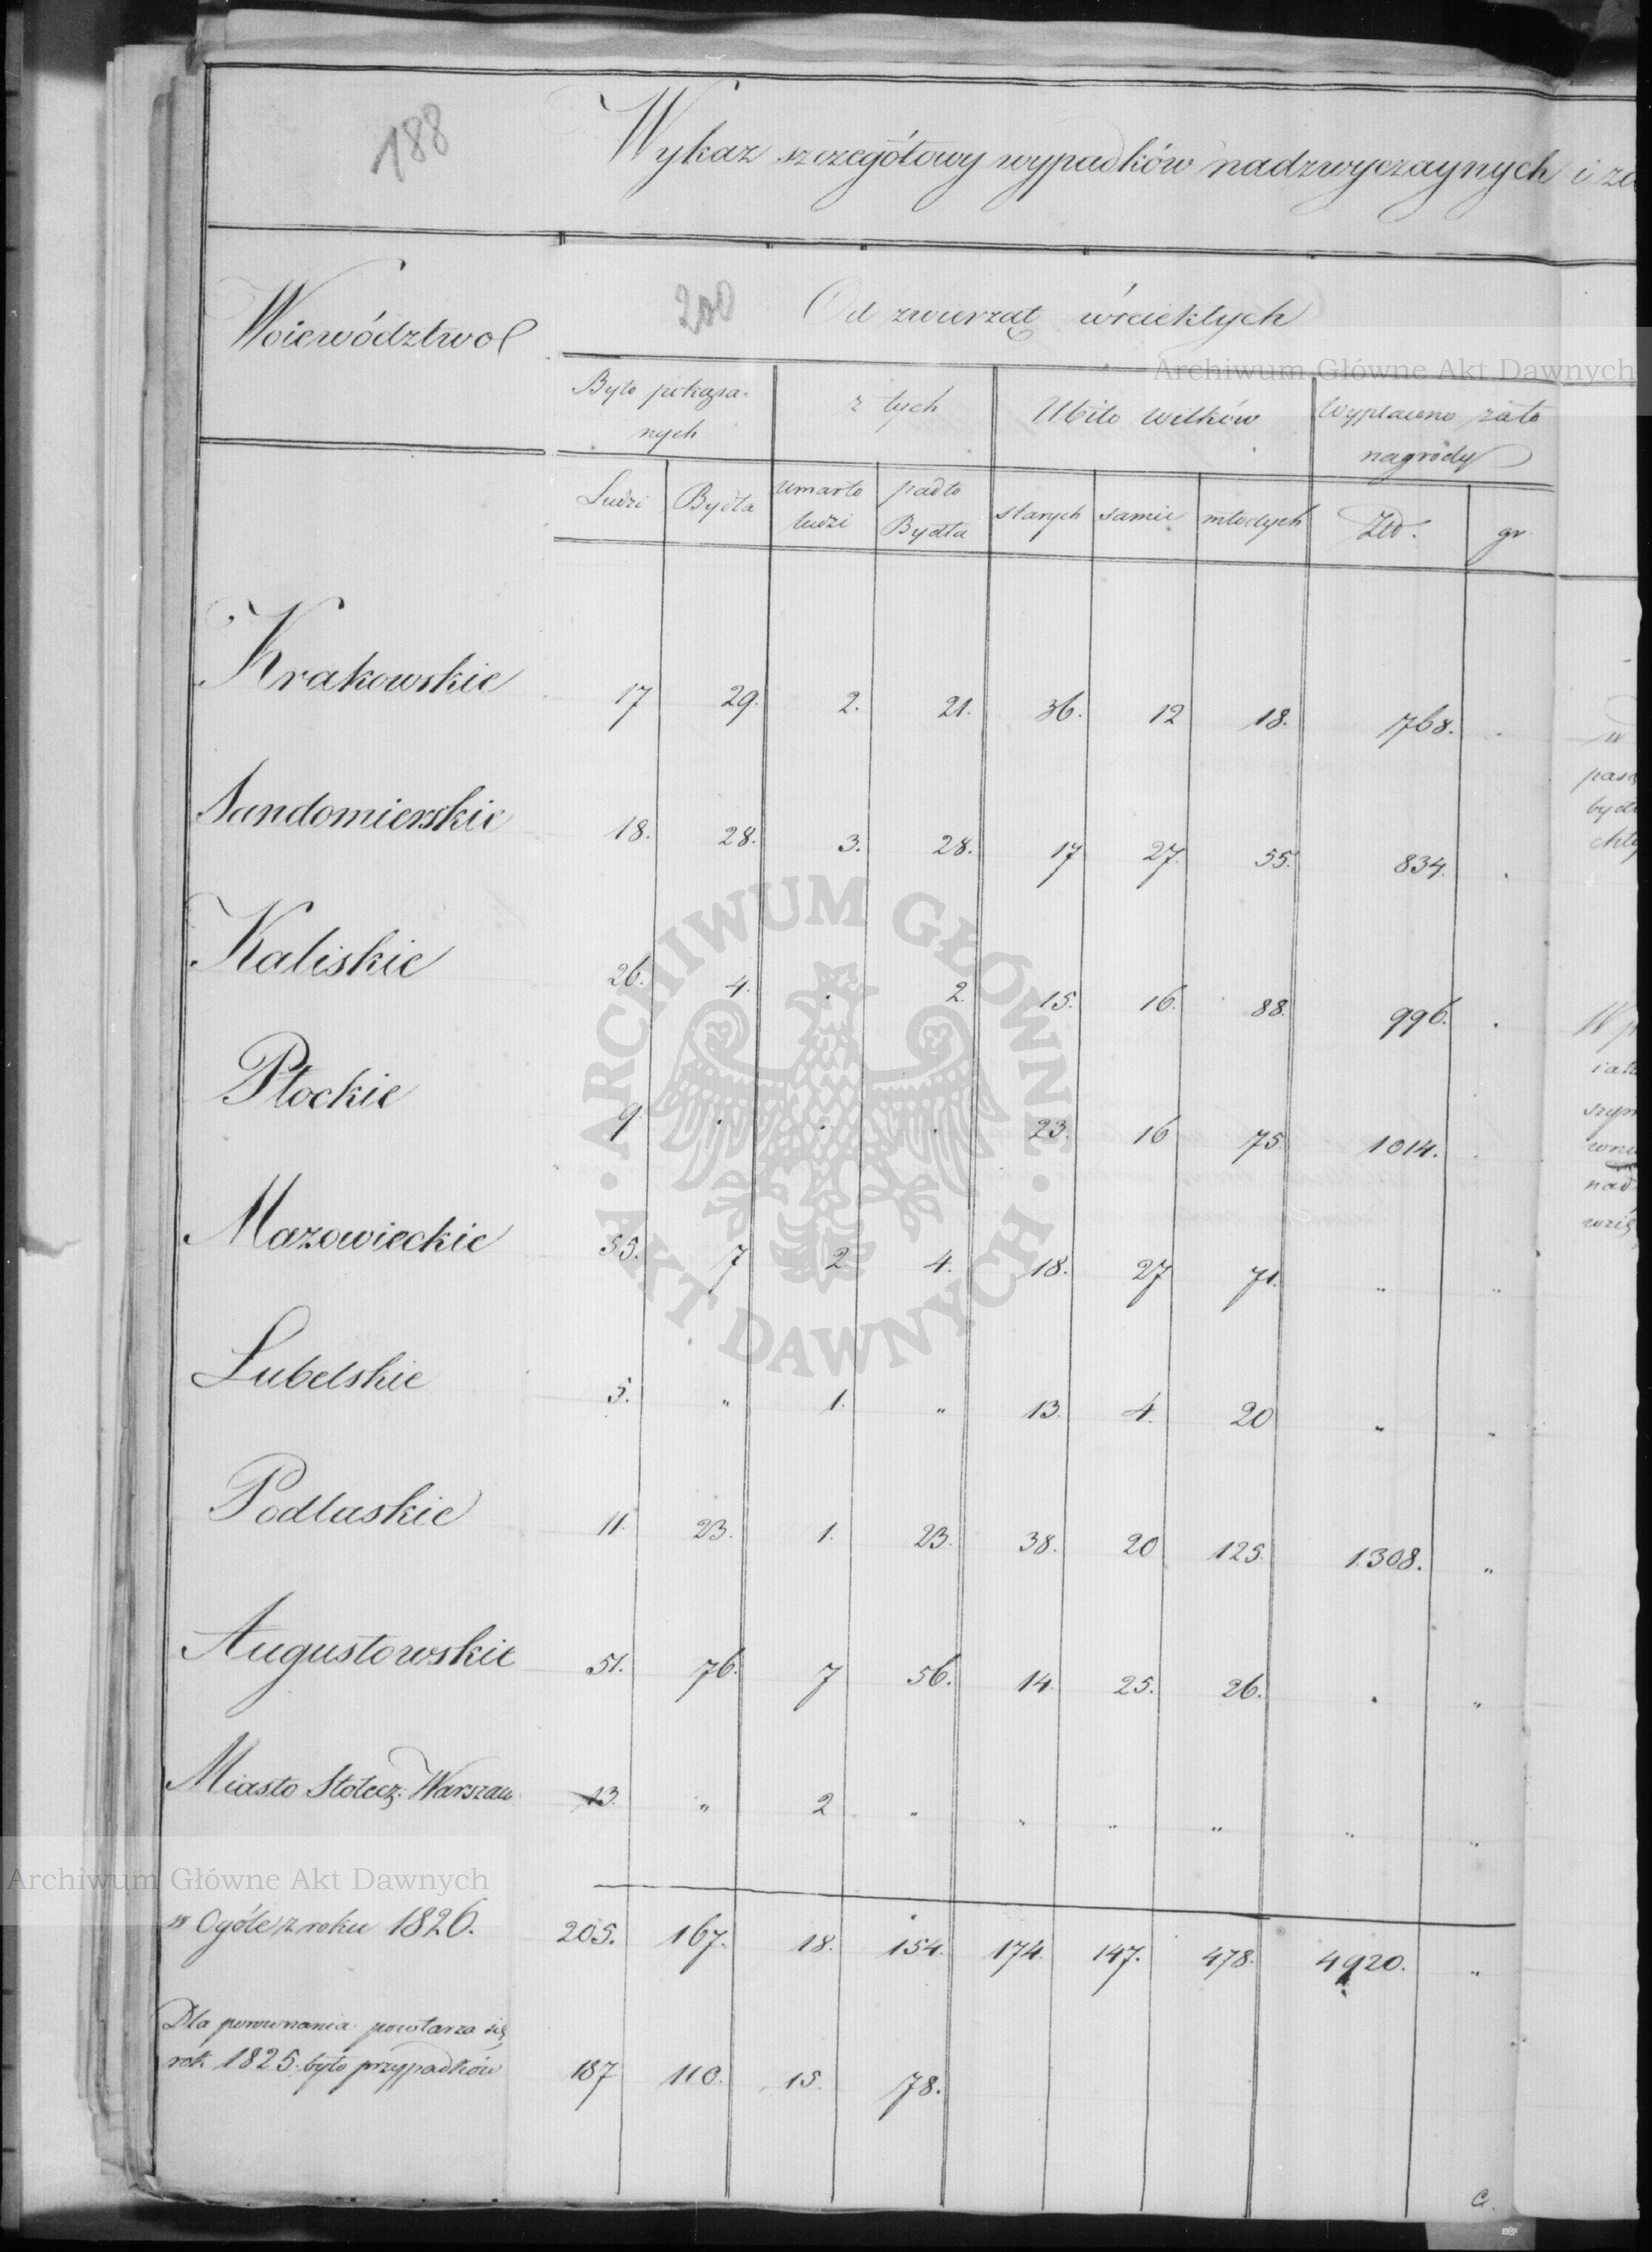 188
Wykaz szczegółowy wypadków nadzwyczaynych i
Woiewództwo
200
Od zwierząt wściekłych
Było pokąsa-
nych
z tych
Ubito wilków
Wypłacono za to
nagrody
Ludzi
Bydła
umarło
ludzi
padło
Bydła
starych
samic
młodych
Złł.
gr
Krakowskie 17 29. 2. 21. 36. 12 18. 768. .
Sandomierskie 18. 28. 3. 28. 17 27. 55. 834. .
Kaliskie 26. 4. . 2. 15. 16. 88. 996. .
Płockie 9 . . . 23. 16 75. 1014. .
Mazowieckie 55. 7 2. 4. 18. 27 71. " "
Lubelskie 5. " 1. " 13. 4. 20 " "
Podlaskie 11. 23. 1. 23. 38. 20 125. 1308. "
Augustowskie 51. 76. 7 56. 14. 25. 26. . "
Miasto Stołecz. Warszaw 13. " 2 " " " " " "
w Ogóle z roku 1826. 205. 167. 18. 154. 174. 147. 478. 4920. "
Dla porównania powtarza się
rok 1825. było przypadków 187 110. 15. 78.
Archiwum Główne Akt Dawnych
ARCHIWUM GŁÓWNE AKT DAWNYCH
Archiwum Główne Akt Dawnych